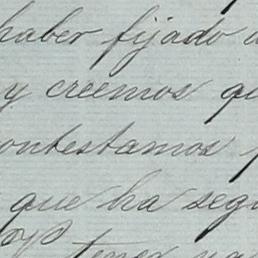 haber fijado
y creemos qu
ontestamos
que ha seg
tener